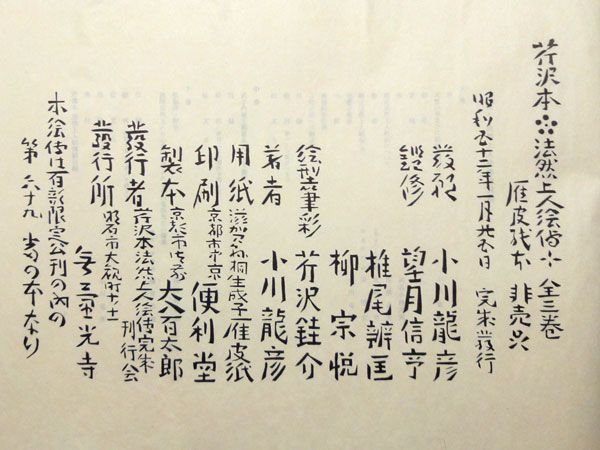 芹沢本 法然上人絵傳 全三巻
雁皮紙本 非売品
昭和五十二年一月廿五日 完成發行
發願 小川龍彦
監修 望月信亨
椎尾辨匡
柳宗悦
筆彩 芹沢銈介
著者 小川龍彦
用紙 桐生成子 雁皮紙
印刷 京都市中京 便利堂
製本 京都市 百太郎
發行者 芹沢本法然上人絵傳完成刊行会
發行所 明石市大観町 無量光寺
本絵傳は百部限定公刊の内の
第六十九 番の本なり